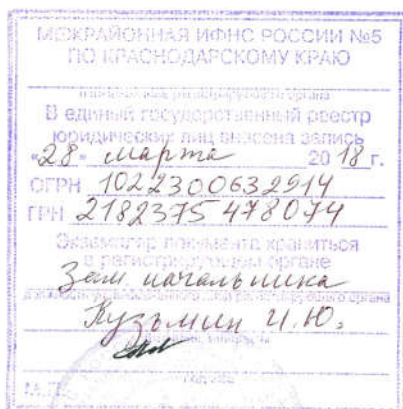 МЕЖРАЙОННАЯ ИФНС РОССИИ №5
ПО КРАСНОДАРСКОМУ КРАЮ
наименование регистрирующего органа
В единый государственный реестр
юридических лиц внесена запись
«28» марта 2018 г.
ОГРН 1022300632914
ГРН 2182375478074
Экземпляр документа хранится
в регистрирующем органе
Зам. начальника
должность уполномоченного лица регистрирующего органа
Кузьмин И.Ю.
фамилия, инициалы
подпись
М.П.